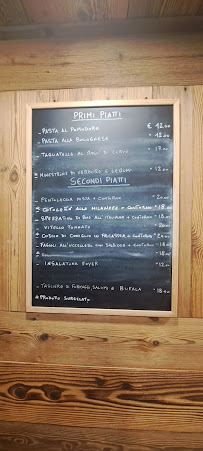 PRIMI PIATTI
- PASTA AL POMODORO € 12.00
- PASTA ALLA BOLOGNESE - 12.00
- TAGLIATELLE AL RAGÙ DI CERVO - 17.00
- MINESTRONE DI VERDURE E LEGUMI - 12.00
SECONDI PIATTI
MISTA + CONTORNO - 20.00
COTOLETTA ALLA MILANESE + CONTORNO - 20.00
SPEZZATINO DI ALL'ITALIANA + CONTORNO - 18.00
VITELLO TONNATO - 20.00
CONIGLIO IN + CONTORNO - 20.00
FAGIOLI ALL'UCCELLETTO CON + CONTORNO - 18.00
- 18.00
- INSALATONA - 12.00
- TAGLIERE DI FORMAGGI, SALUMI E BUFALA - 18.00
* PRODOTTO SURGELATO